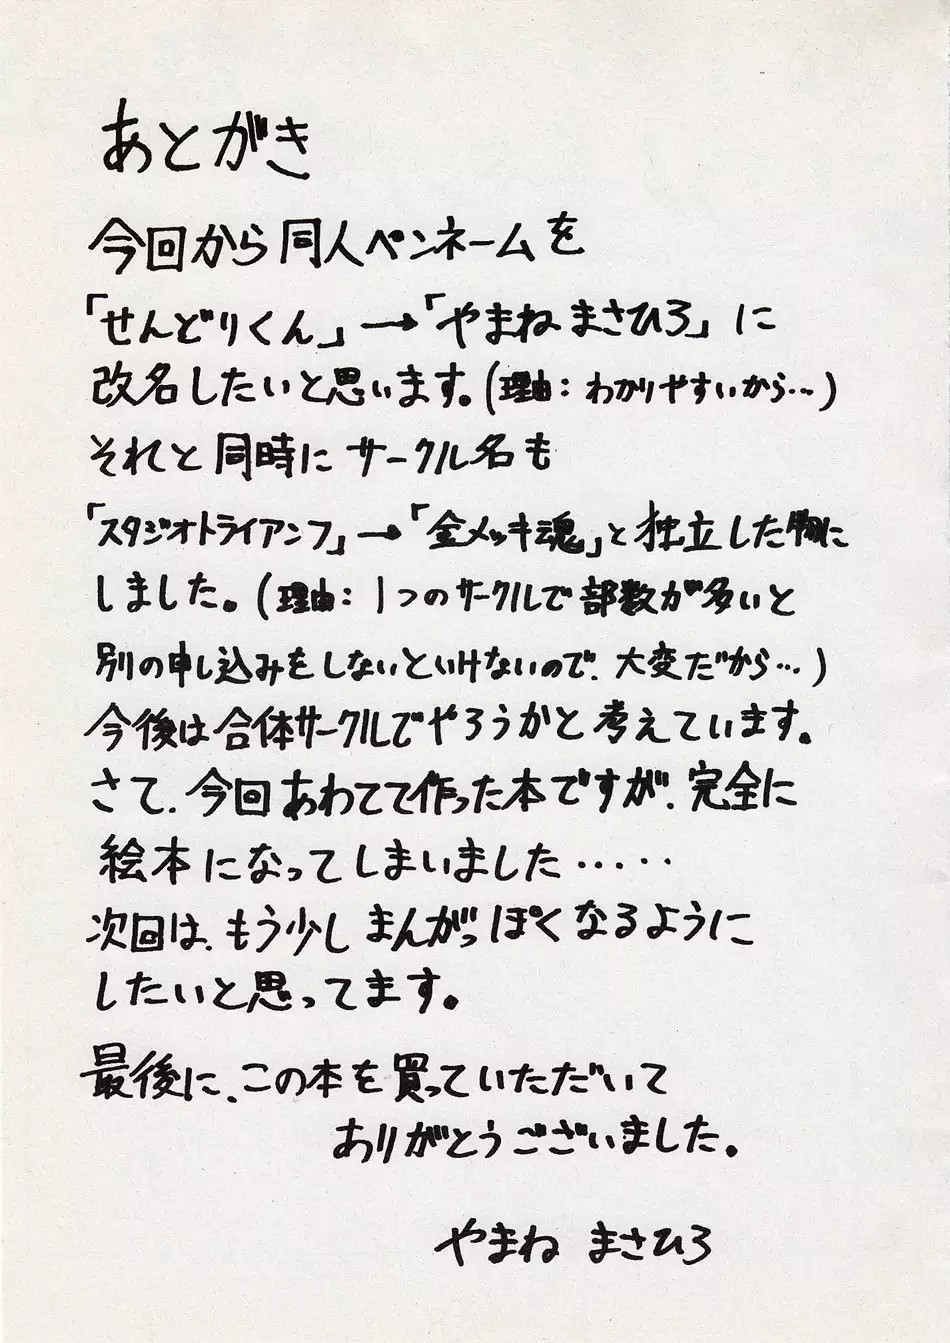 あとがき
今回から同人ペンネームを
「せんどりくん」→「やまねまさひろ」に
改名したいと思います。(理由:わかりやすいから…)
それと同時にサークル名も
「スタジオトライアンフ」→「金メッキ魂」と独立した物に
しました。(理由:1つのサークルで部数が多いと
別の申し込みをしないといけないので、大変だから…)
今後は合体サークルでやろうかと考えています。
さて、今回あわてて作った本ですが、完全に
絵本になってしまいました・・・・・
次回は、もう少しまんがっぽくなるように
したいと思ってます。
最後に、この本を買っていただいて
ありがとうございました。
やまね まさひろ